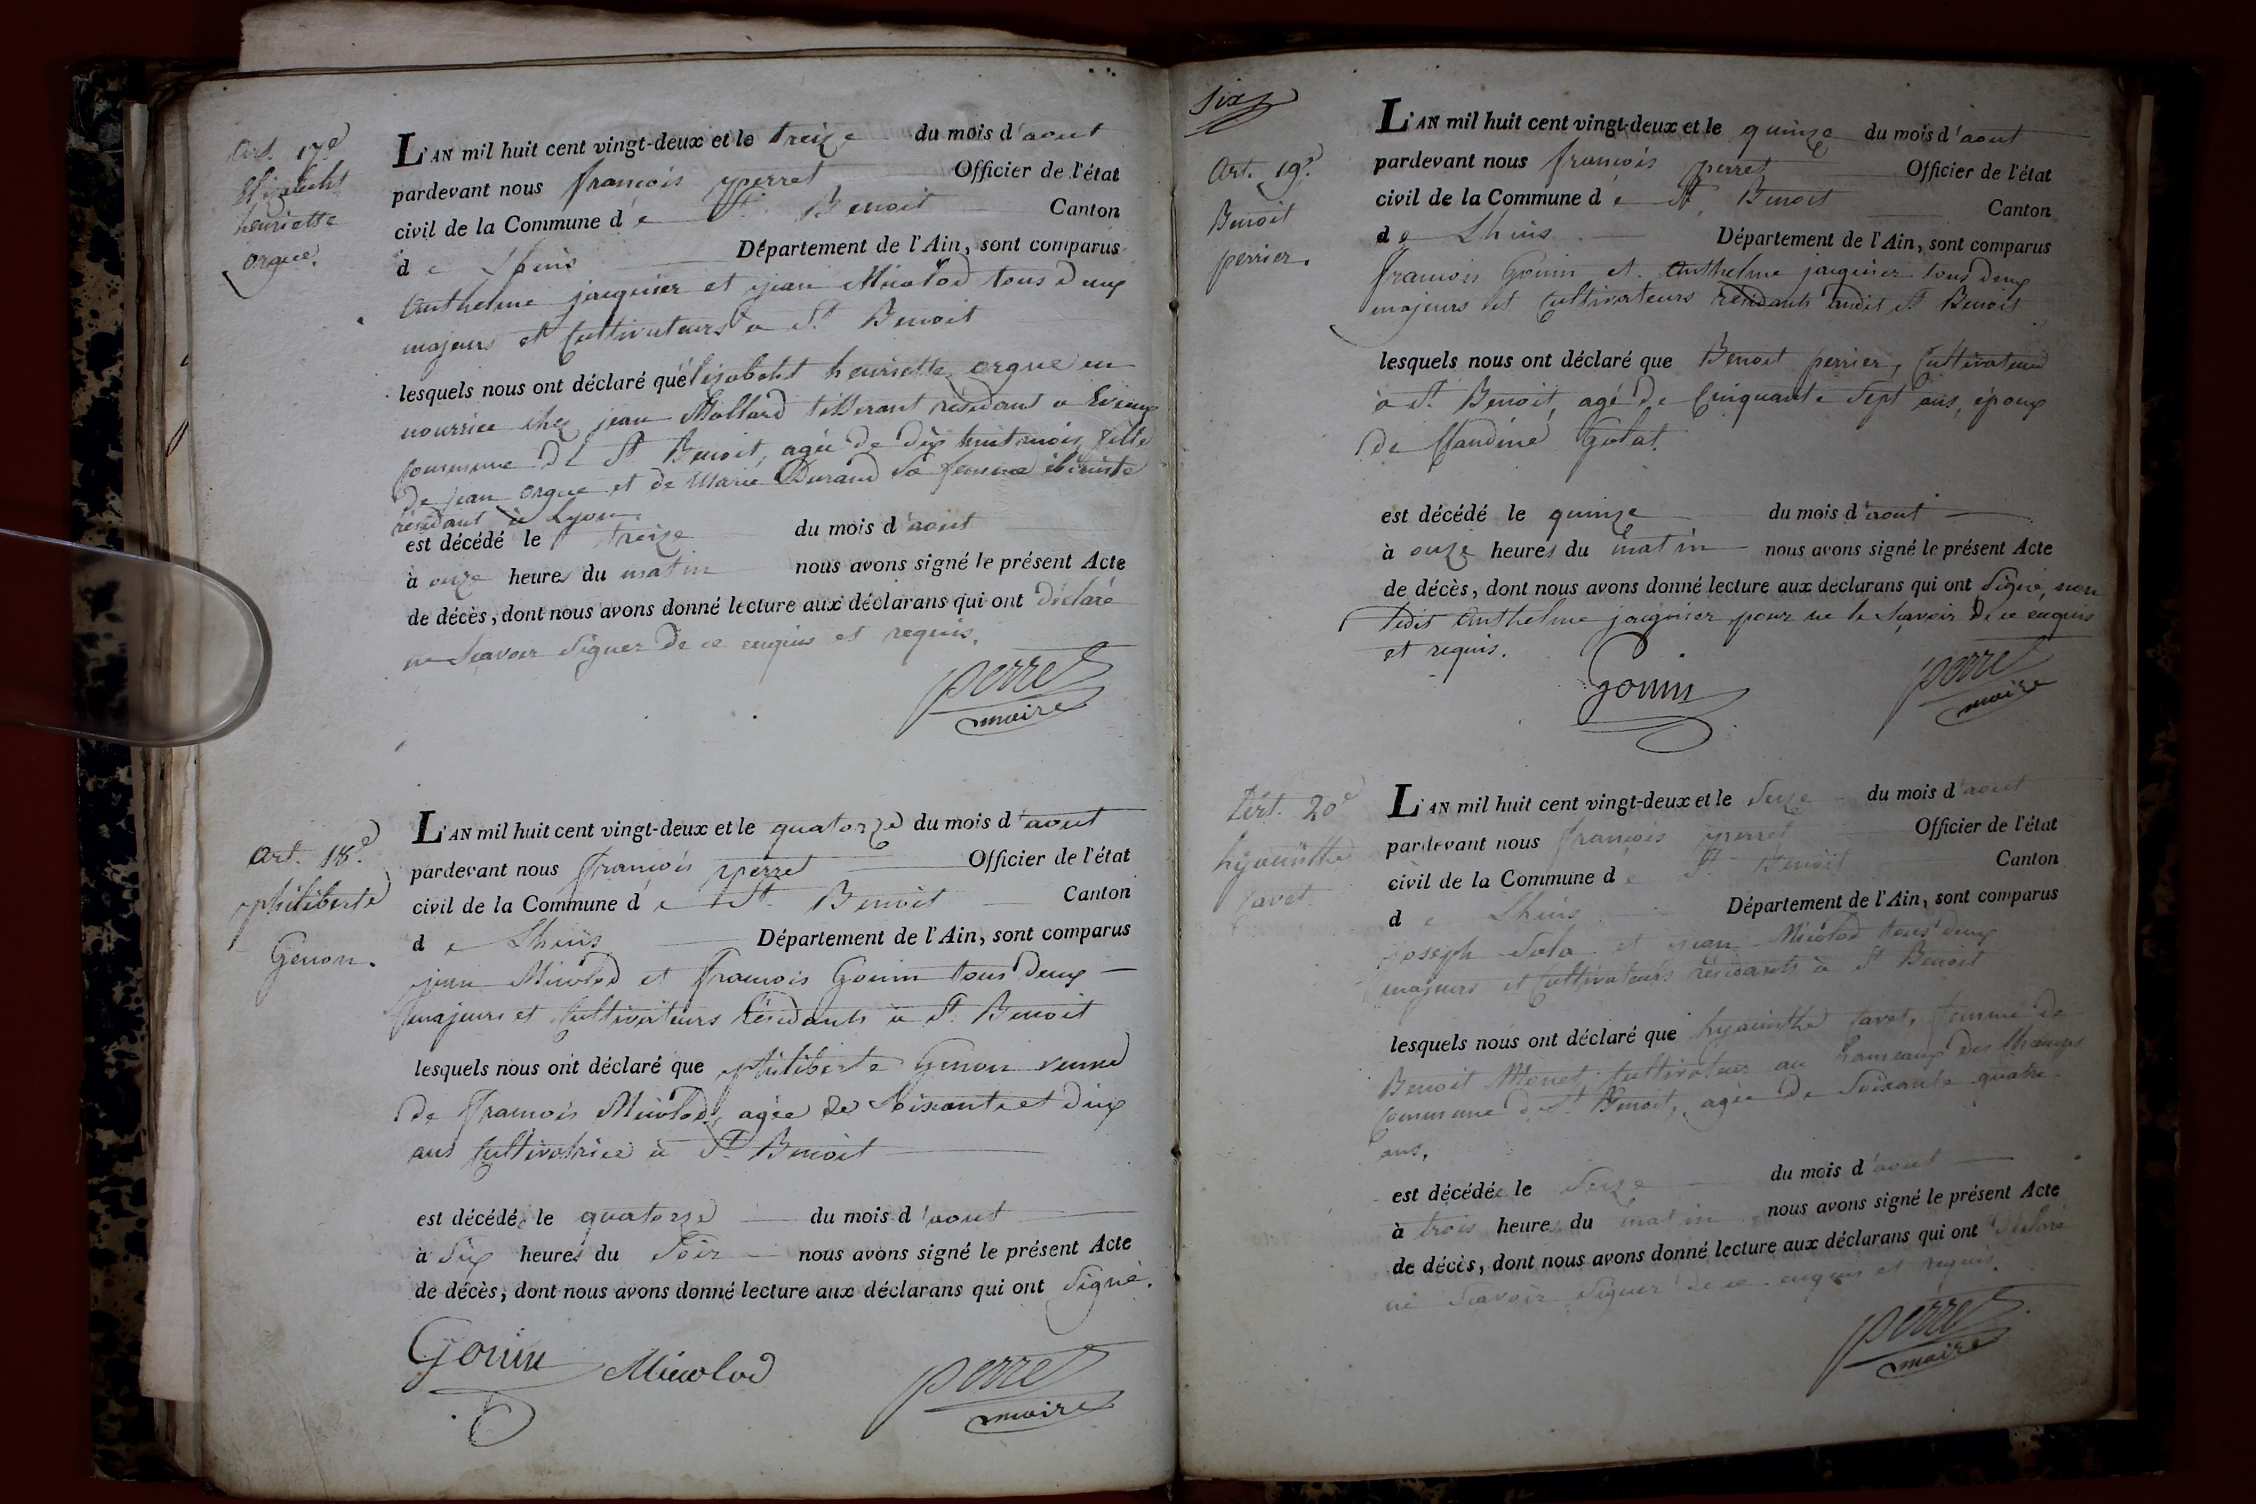 Art. 17e
Elizabeht
henriette
orgue.
L'AN mil huit cent vingt-deux et le treize du mois d'aout
pardevant nous françois perret Officier de l'état
civil de la Commune de St. Benoit Canton
de Lhuis Département de l'Ain, sont comparus
Anthelme jacquier et jean Micolod tous deux
majeurs et Cultivateurs à St. Benoit
lesquels nous ont déclaré qu'élisabeht henriette orgue en
nourrice chez jean Mollard tisserant résidant a Evieux
commune de St. Benoit, agée de dix huit mois, fille
de jean orgue et de Marie Durand sa femme
résidant à Lyon.
est décédé le treize du mois d'aout
à onze heures du matin nous avons signé le présent Acte
de décès, dont nous avons donné lecture aux déclarans qui ont déclaré
ne sçavoir signer de ce enquis et requis.
perret
maire
Art. 18e
philiberte
Genon.
L'AN mil huit cent vingt-deux et le quatorze du mois d'aout
pardevant nous françois perret Officier de l'état
civil de la Commune de St. Benoit Canton
de Lhuis Département de l'Ain, sont comparus
jean Micolod et françois Gonin tous deux
majeurs et Cultivateurs résidants à St. Benoit
lesquels nous ont déclaré que philiberte Genon veuve
de françois Micolod, agée de soixante et dix
ans Cultivatrice à St. Benoit
est décédée le quatorze du mois d'aout
à six heures du soir nous avons signé le présent Acte
de décès, dont nous avons donné lecture aux déclarans qui ont signé.
Gonin Micolod perret
maire
Six
Art. 19e
Benoit
perrier.
L'AN mil huit cent vingt-deux et le quinze du mois d'aout
pardevant nous françois perret Officier de l'état
civil de la Commune de St. Benoit Canton
de Lhuis Département de l'Ain, sont comparus
françois Gonin et Anthelme jacquier tous deux
majeurs et Cultivateurs résidants audit St. Benoit
lesquels nous ont déclaré que Benoit perrier, Cultivateur
à St. Benoit, agé de Cinquante sept ans, époux
de Claudine Golat.
est décédé le quinze du mois d'aout
à onze heures du matin nous avons signé le présent Acte
de décès, dont nous avons donné lecture aux déclarans qui ont signé, non
ledit Anthelme jacquier pour ne le sçavoir de ce enquis
et requis.
gonin perret
maire
Art. 20e
hyacinthe
favet.
L'AN mil huit cent vingt-deux et le seize du mois d'aout
pardevant nous françois perret Officier de l'état
civil de la Commune de St. Benoit Canton
de Lhuis Département de l'Ain, sont comparus
joseph Sola et jean Micolod tous deux
majeurs et Cultivateurs résidants à St. Benoit
lesquels nous ont déclaré que hyacinthe favet, femme de
Benoit Monet Cultivateur au hameaux des Champs
Commune de St. Benoit, agée de soixante quatre
ans.
est décédée le seize du mois d'aout
à trois heures du matin nous avons signé le présent Acte
de décès, dont nous avons donné lecture aux déclarans qui ont déclaré
ne sçavoir signer de ce enquis et requis.
perret
maire